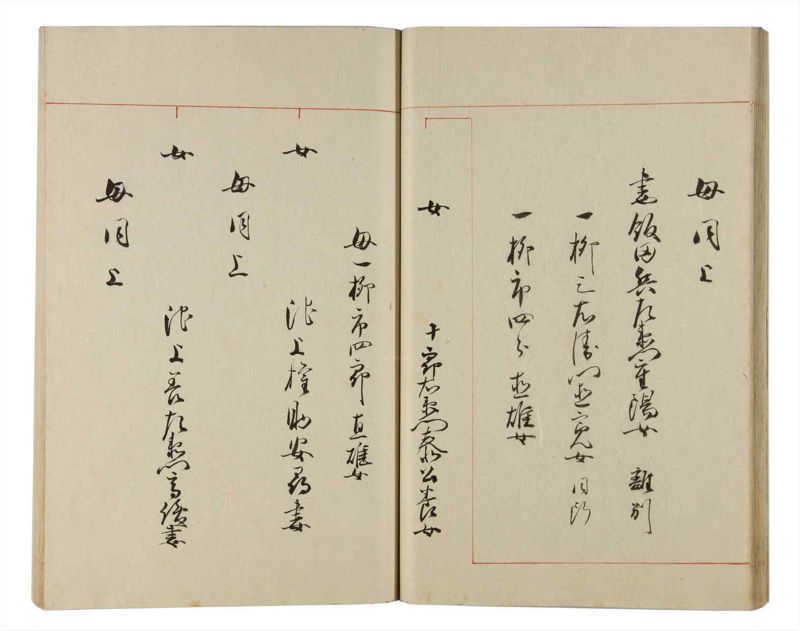 母同上
妻飯田兵左衛門重陽女 離別
一柳三右衛門直寛女 同断
一柳市四郎直雄女
女
十郎右衛門泰公養女
母一柳市四郎直雄女
女
母同上
池上権助安尋妻
女
母同上
池上善左衛門高儀妻